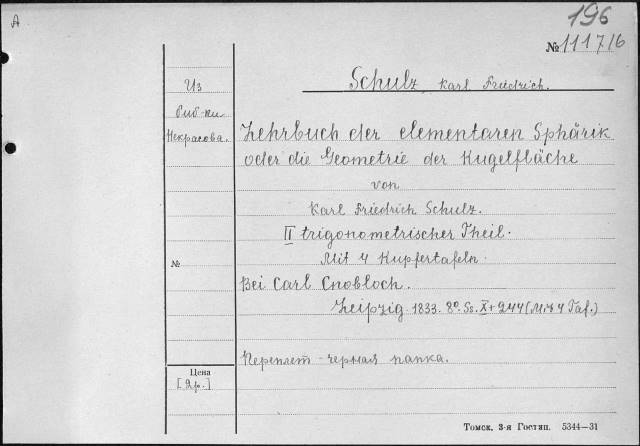 A
196
№ 11176
Schulz Karl Friedrich.
Из
биб-ки
Некрасова.
Lehrbuch der elementaren Sphärik
oder die Geometrie der Kugelfläche
von
Karl Friedrich Schulz.
II trigonometrischer Theil.
Mit 4 Kupfertafeln.
№
Bei Carl Cnobloch.
Leipzig. 1833. 8º. Ss. X+244 (Mit 4 Taf.)
Переплет - черная папка.
Цена
Томск, 3-я Гостип. 5344—31